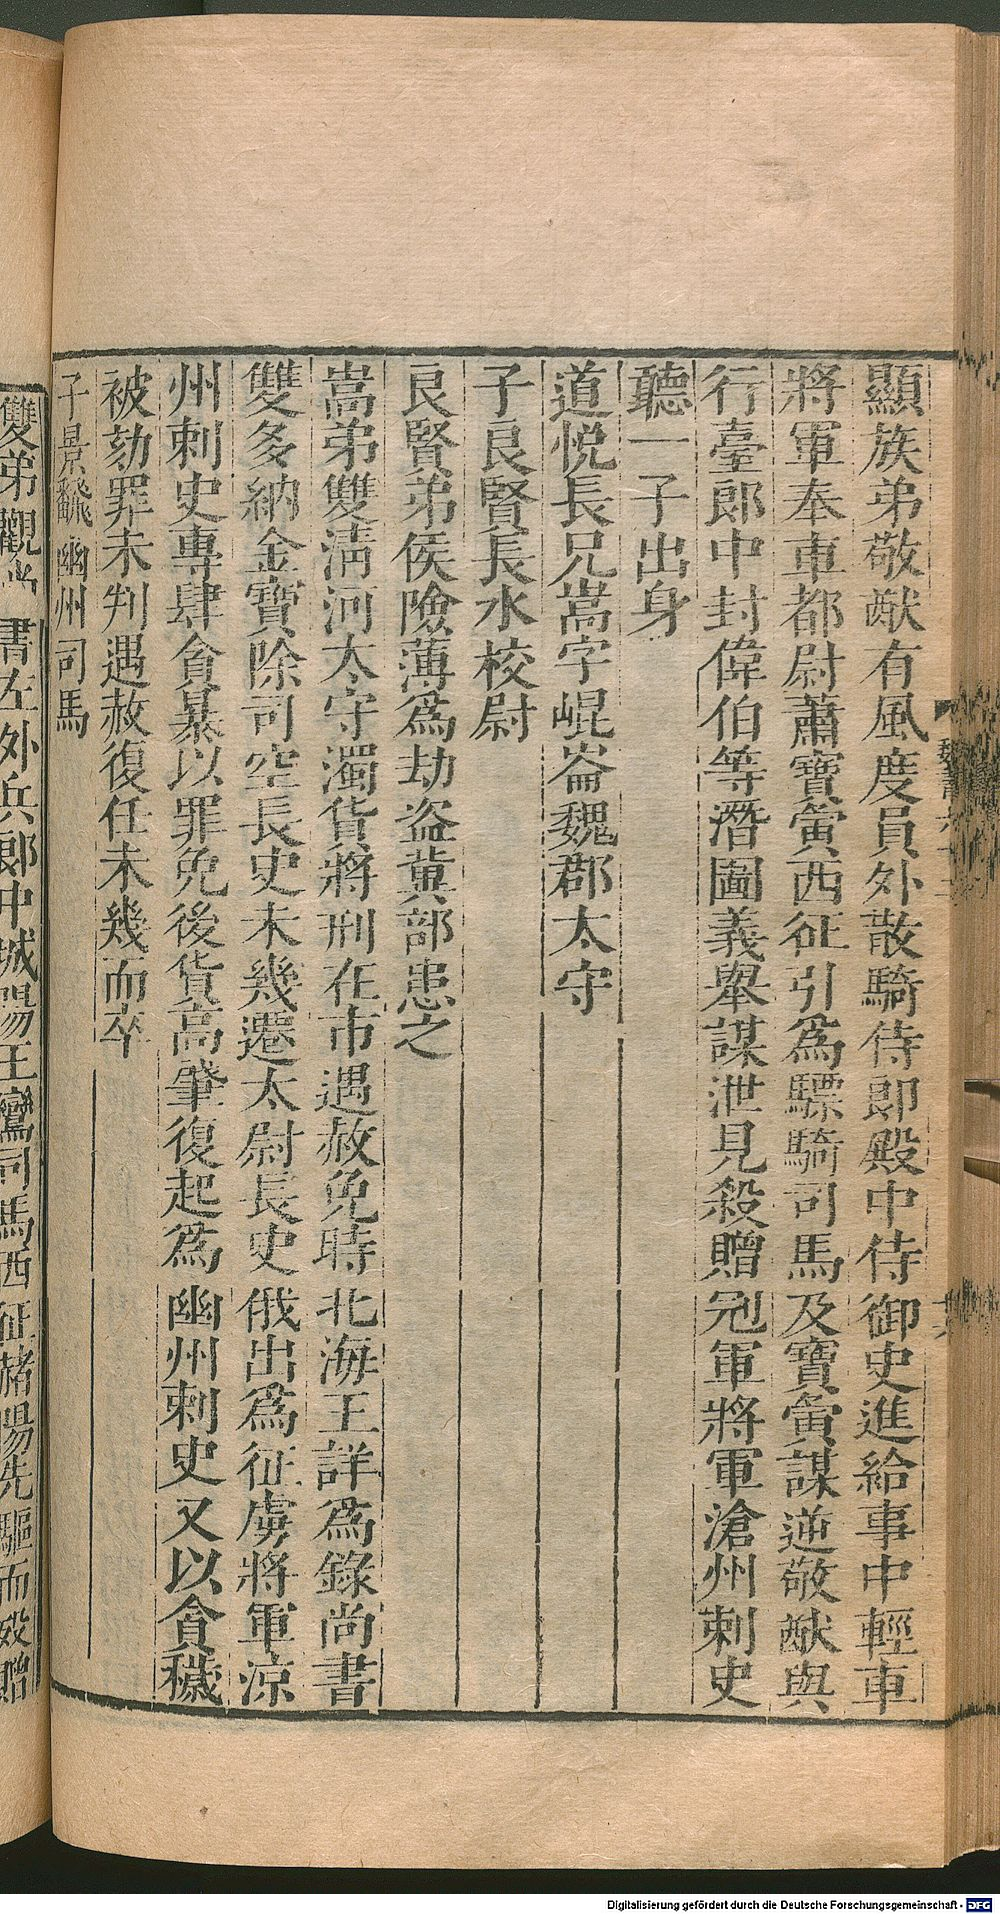 顯族弟敬猷有風度員外散騎侍郎殿中侍御史進給事中輕車
將軍奉車都尉蕭寶夤西征引為驃騎司馬及寶夤謀逆敬猷與
行臺郎中封偉伯等潛圖義舉謀泄見殺贈冠軍將軍滄州刺史
聽一子出身
道悅長兄嵩字崐崙魏郡太守
子良賢長水校尉
良賢弟侯險薄為劫盜冀部患之
嵩弟雙清河太守濁貨將刑在市遇赦免時北海王詳為錄尚書
雙多納金寶除司空長史未幾遷太尉長史俄出為征虜將軍涼
州刺史專肆貪暴以罪免後貨高肇復起為幽州刺史又以貪穢
被劾罪未判遇赦復任未幾而卒
子景飜幽州司馬
雙弟觀尚書左外兵郎中城陽王鸞司馬西征赭陽先驅而歿贈
Digitalisierung gefördert durch die Deutsche Forschungsgemeinschaft - DFG